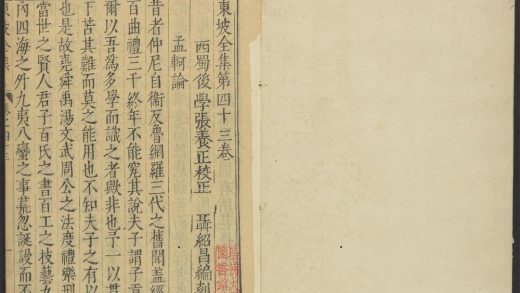 東坡全集第四十三卷
西蜀後學張養正校正 聶紹昌編刻
孟軻論
昔者仲尼自衛反魯網羅三代之舊聞蓋經
百曲禮三千終年不能究其說夫子謂子貢
爾以吾爲多學而識之者歟非也予一以貫
于苦其難而莫之能用也不知夫子之有以
也是故堯舜禹湯文武周公之法度禮樂刑
當世之賢人君子百氏之書百工之技藝九
內四海之外九夷八蠻之事荒忽誕謾而不